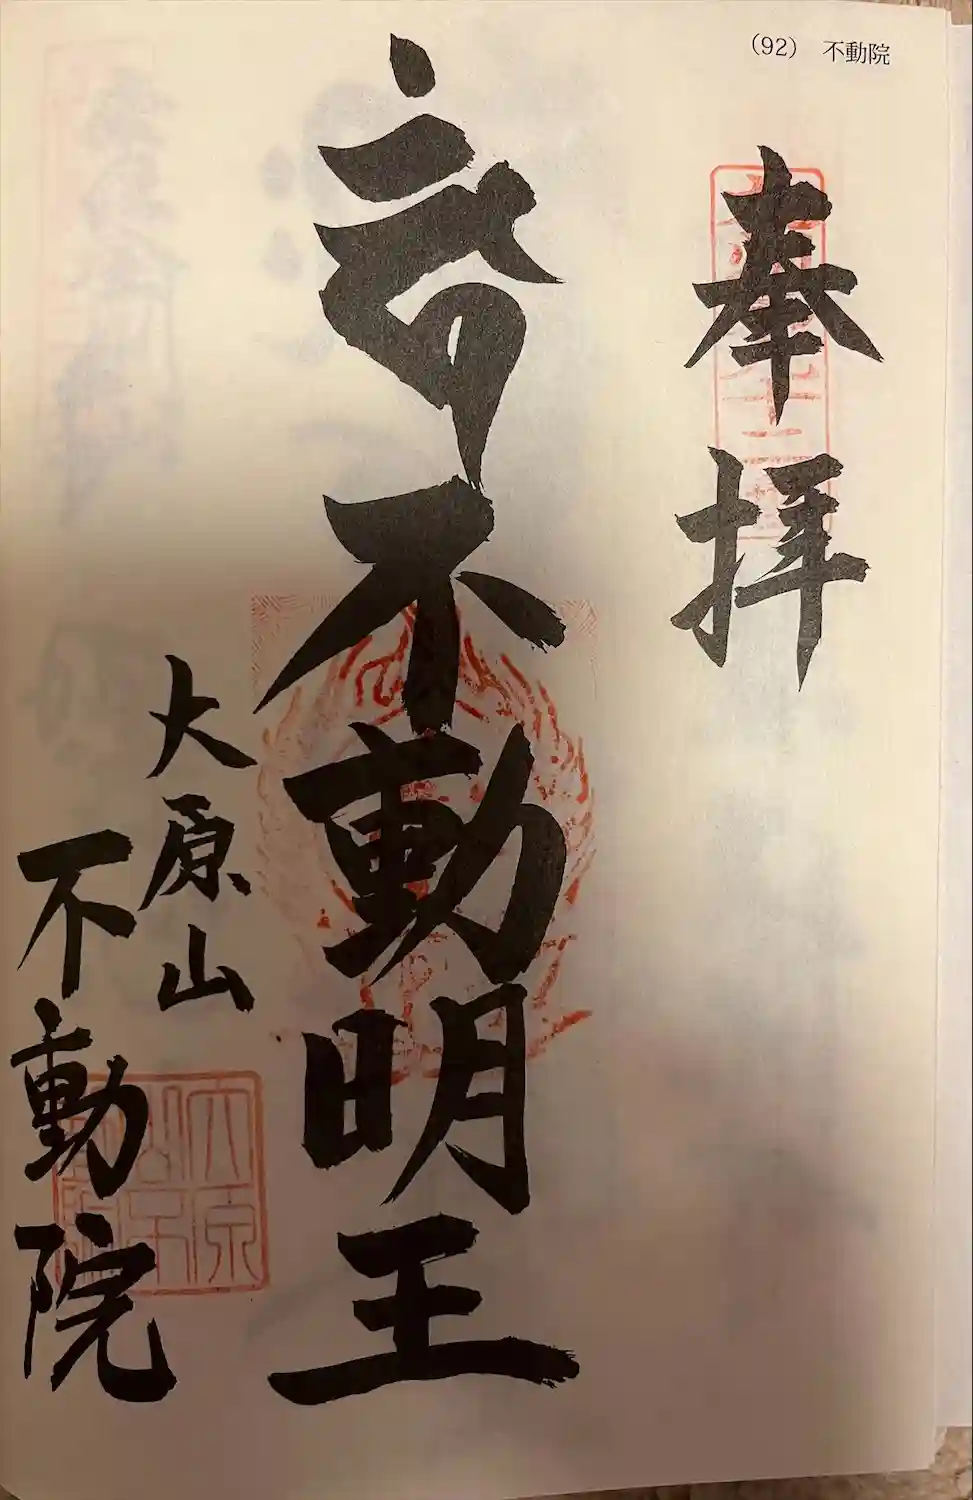 (92) 不動院
奉拝
不動明王
大原山
不動院